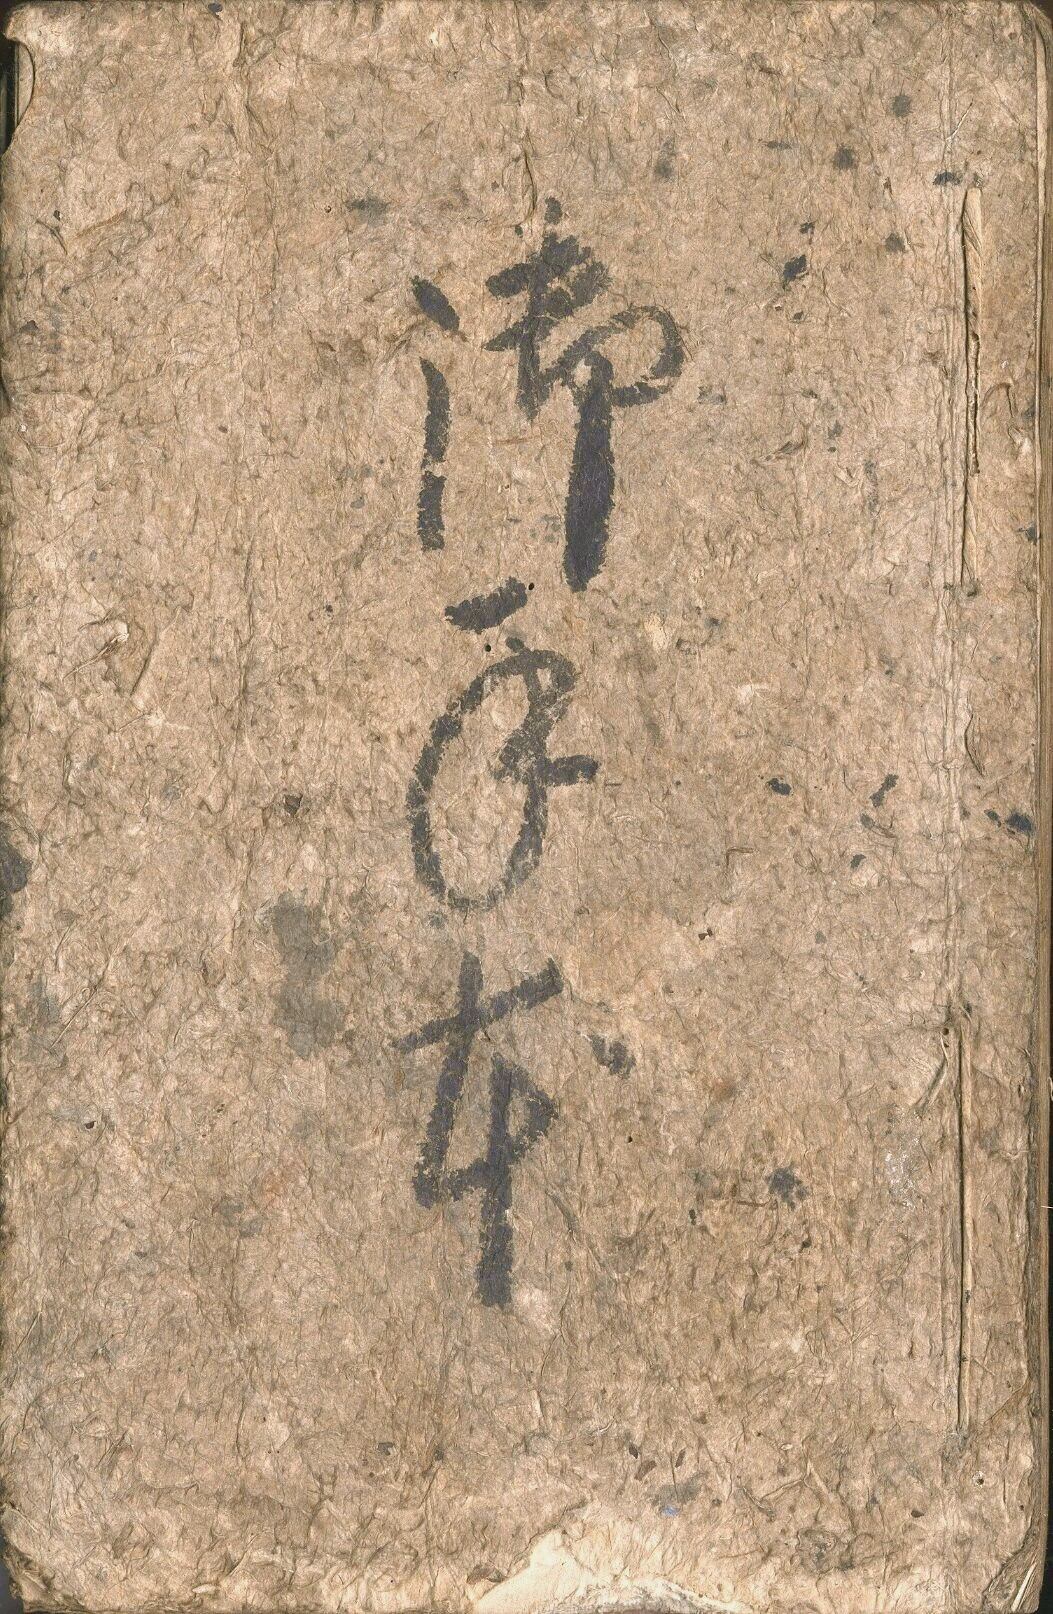 御手本